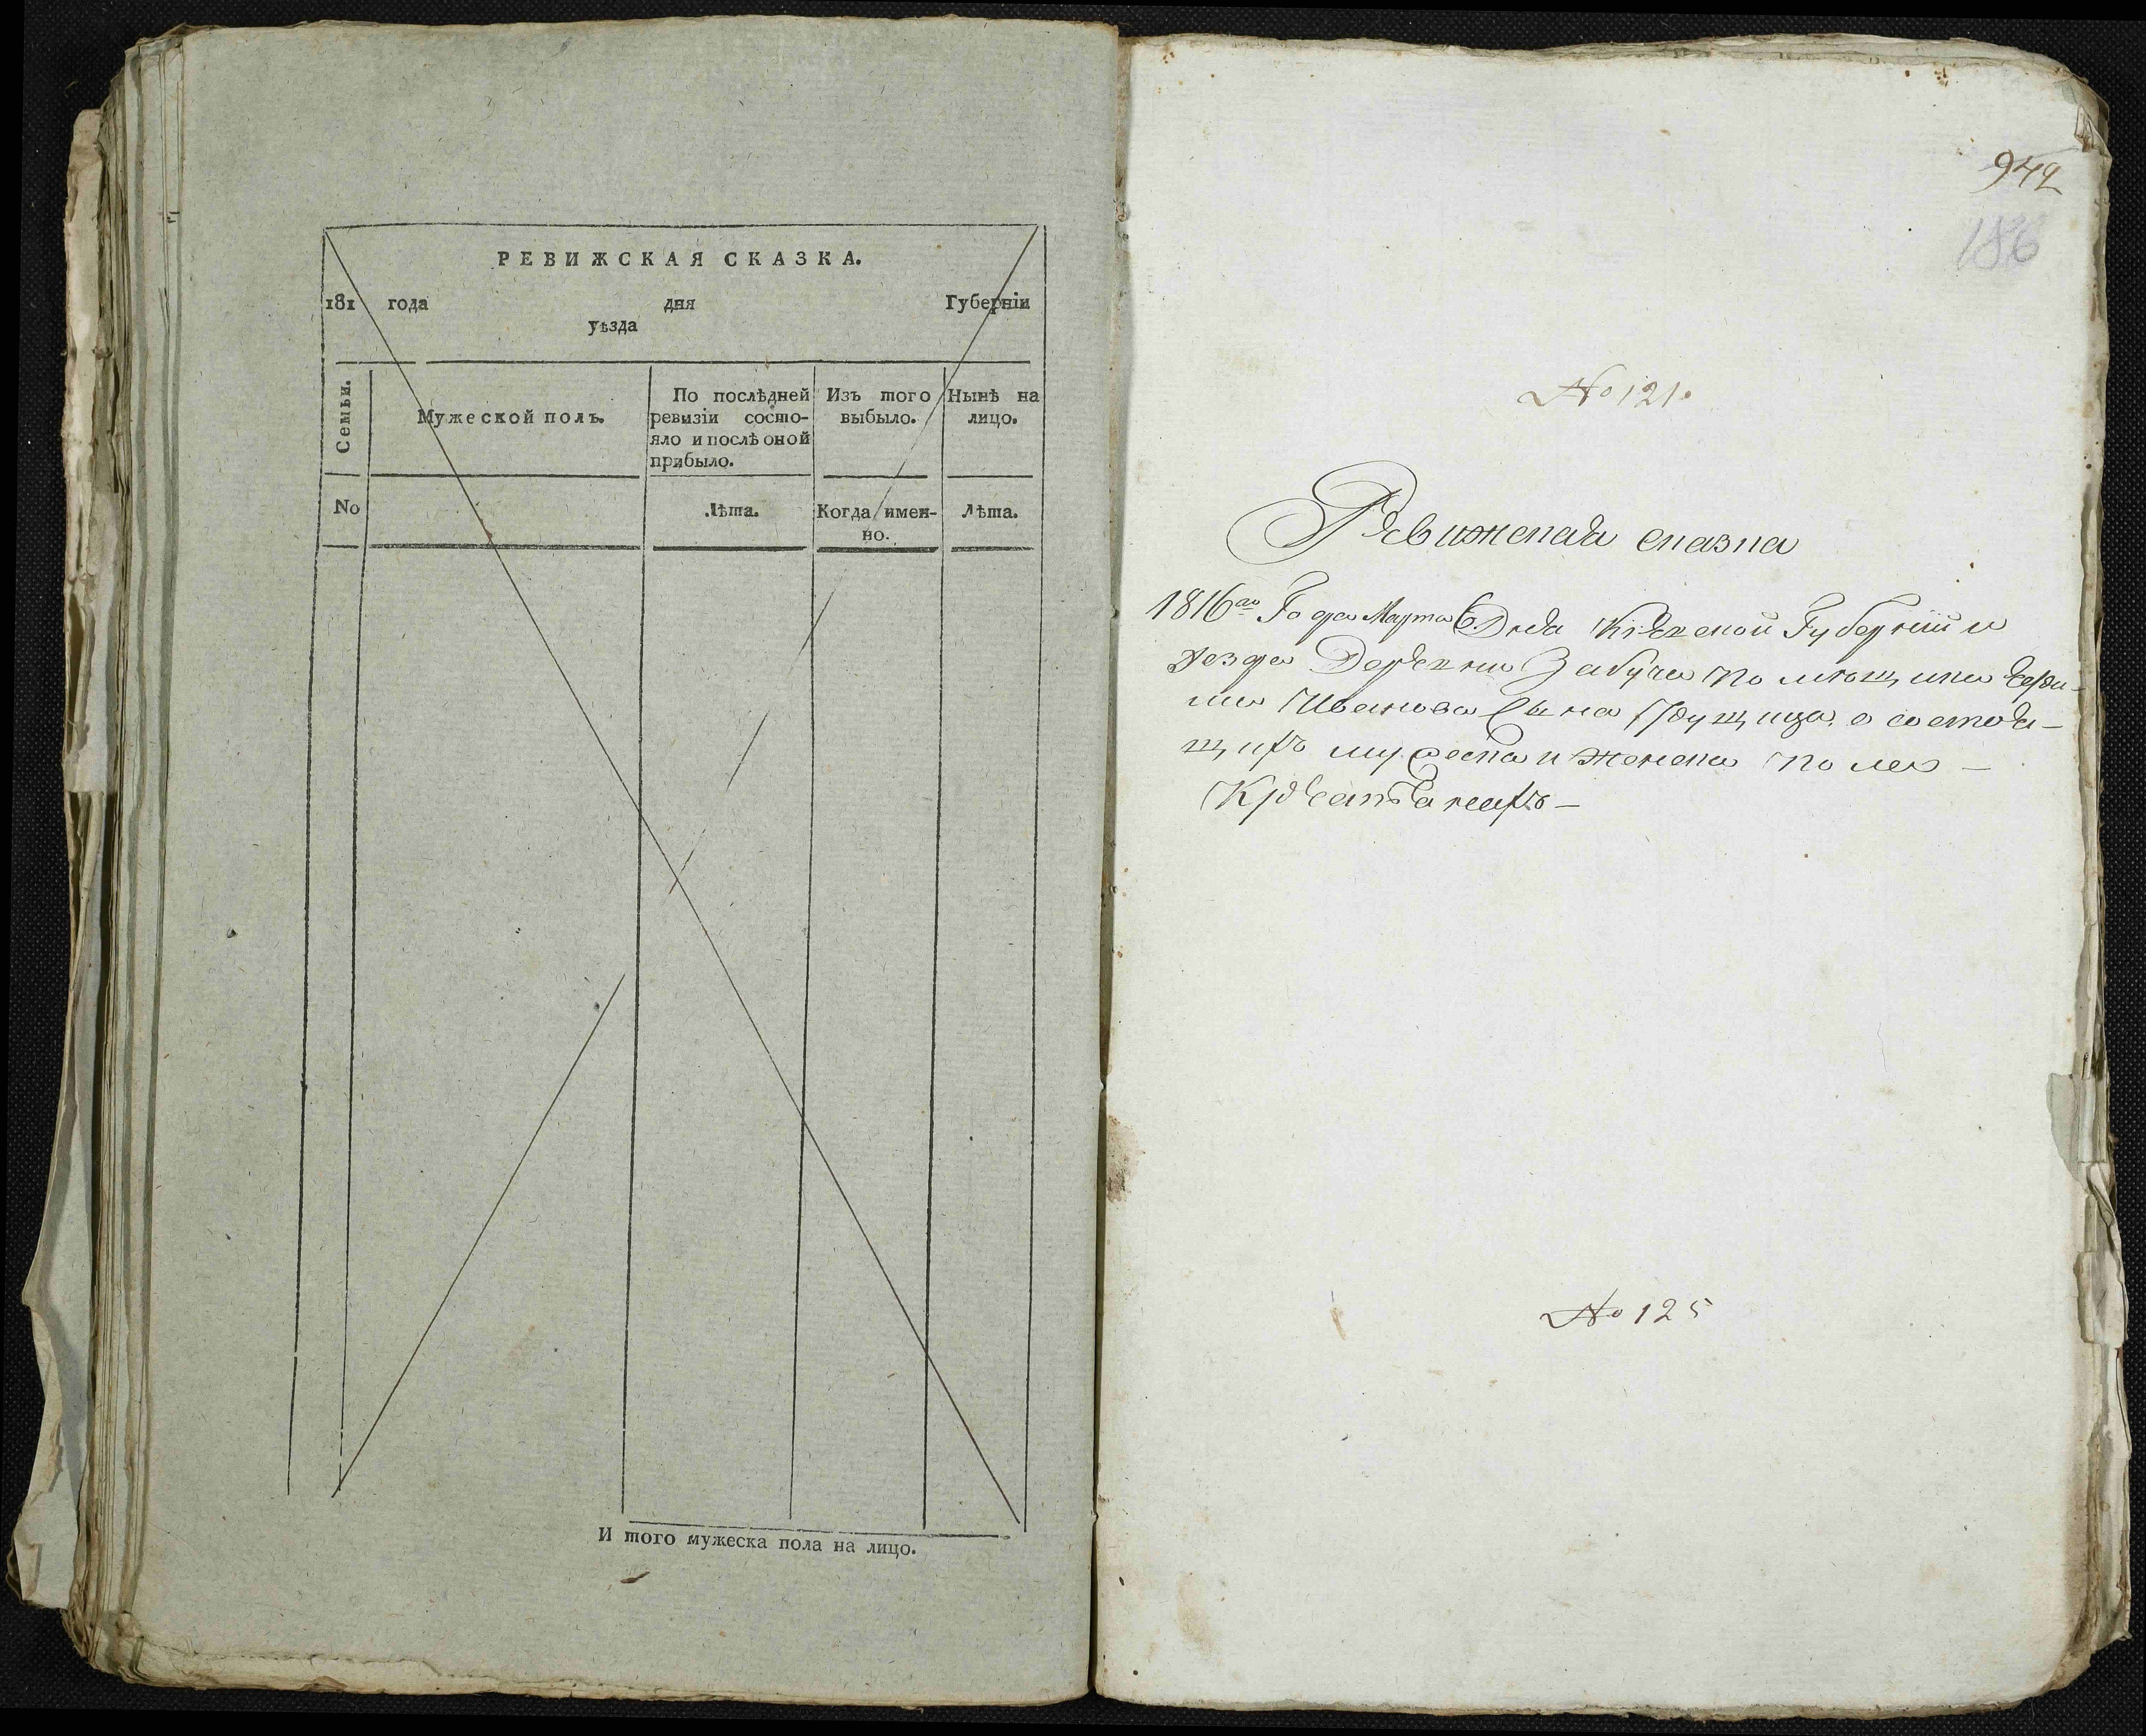 РЕВИЖСКАЯ СКАЗКА.
181 года дня Губерніи
уѣзда
Семьи.
Мужеской полъ.
По послѣдней
ревизіи состо-
яло и послѣ оной
прибыло.
Изъ того
выбыло.
Нынѣ на
лицо.
No
Лѣта.
Когда имен-
но.
Лѣта.
И того мужеска пола на лицо.
942
186
No 121.
Ревижская сказка
1816го Года Марта 6 Дня Кіевской Губерніи и
уезда Деревни Забучa помѣщика
Иванова Сына о состоя-
щихъ мужеска и женска пола
Крестьянахъ
No 125